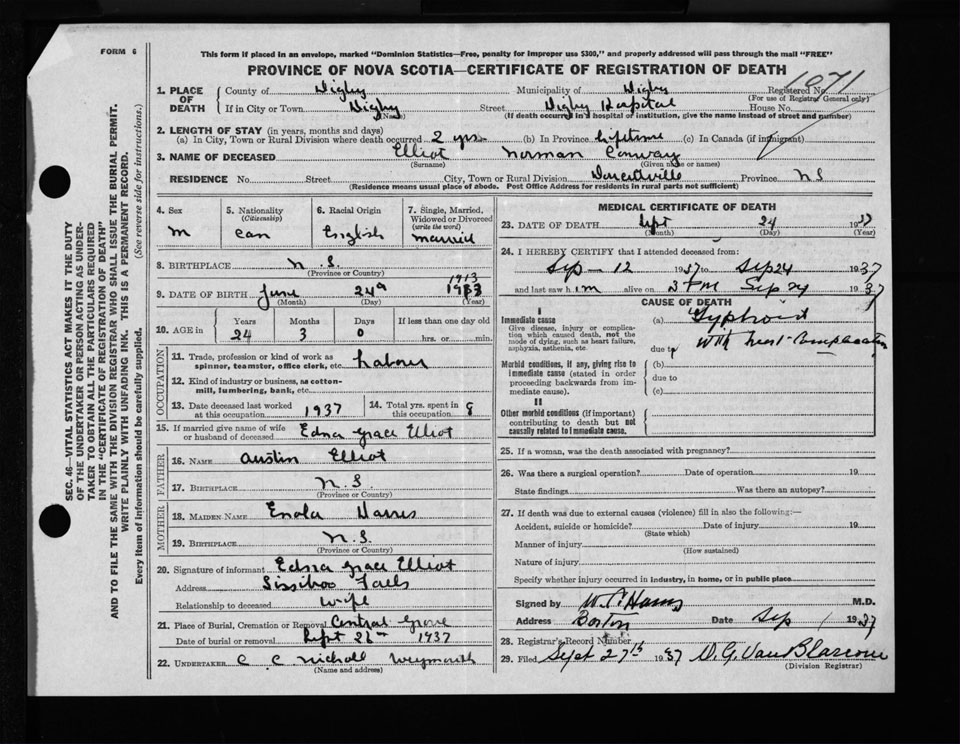 FORM 6
This form if placed in an envelope, marked "Dominion Statistics—Free, penalty for improper use $300," and properly addressed will pass through the mail "FREE"
PROVINCE OF NOVA SCOTIA—CERTIFICATE OF REGISTRATION OF DEATH
1071
1. PLACE OF DEATH
County of Digby Municipality of Digby Registered No.
(For use of Registrar General only)
If in City or Town Digby Street Digby Hospital House No.
(Name) (If death occurred in a hospital or institution, give the name instead of street and number)
2. LENGTH OF STAY (in years, months and days)
(a) In City, Town or Rural Division where death occurred 2 yrs (b) In Province lifetime (c) In Canada (if immigrant)
3. NAME OF DECEASED Elliot Norman Conway
(Surname) (Given name or names)
RESIDENCE No. Street City, Town or Rural Division Province N S
(Residence means usual place of abode. Post Office Address for residents in rural parts not sufficient)
4. Sex
M
5. Nationality
(Citizenship)
Can
6. Racial Origin
English
7. Single, Married, Widowed or Divorced
(write the word)
Married
8. BIRTHPLACE N.S.
(Province or Country)
1913
9. DATE OF BIRTH June 24th
(Month) (Day) (Year)
10. AGE in
Years Months Days If less than one day old
24 3 0 hrs. or min.
OCCUPATION
11. Trade, profession or kind of work as spinner, teamster, office clerk, etc. Labour
12. Kind of industry or business, as cotton-mill, lumbering, bank, etc.
13. Date deceased last worked at this occupation 1937
14. Total yrs. spent in this occupation 8
15. If married give name of wife or husband of deceased Edna Grace Elliot
FATHER
16. NAME Austin Elliot
17. BIRTHPLACE N.S.
(Province or Country)
MOTHER
18. MAIDEN NAME Enola Harris
19. BIRTHPLACE N.S.
(Province or Country)
20. Signature of informant Edna Grace Elliot
Address Sissiboo Falls
Relationship to deceased Wife
21. Place of Burial, Cremation or Removal Central Grove
Date of burial or removal Sept 26th 1937
22. UNDERTAKER C C Nicholl Weymouth
(Name and address)
MEDICAL CERTIFICATE OF DEATH
23. DATE OF DEATH Sept 24 1937
(Month) (Day) (Year)
24. I HEREBY CERTIFY that I attended deceased from:
Sep — 12 1937 to Sep 24 1937
and last saw him alive on 3 P M Sep 24 1937
CAUSE OF DEATH
I
Immediate cause
Give disease, injury or complication which caused death, not the mode of dying, such as heart failure, asphyxia, asthenia, etc.
(a) Typhoid
due to with heart complication
Morbid conditions, if any, giving rise to immediate cause (stated in order proceeding backwards from immediate cause).
(b)
due to
(c)
II
Other morbid conditions (if important) contributing to death but not causally related to immediate cause.
25. If a woman, was the death associated with pregnancy?
26. Was there a surgical operation? Date of operation 19
State findings Was there an autopsy?
27. If death was due to external causes (violence) fill in also the following:—
Accident, suicide or homicide? Date of injury 19
(State which)
Manner of injury
(How sustained)
Nature of injury
Specify whether injury occurred in industry, in home, or in public place
Signed by M.D.
Address Date Sep 1937
28. Registrar's Record Number
29. Filed Sept 27th 1937 D. G. VanBlarcom
(Division Registrar)
SEC. 46—VITAL STATISTICS ACT MAKES IT THE DUTY
OF THE UNDERTAKER OR PERSON ACTING AS UNDER-
TAKER TO OBTAIN ALL THE PARTICULARS REQUIRED
IN THE "CERTIFICATE OF REGISTRATION OF DEATH"
AND TO FILE THE SAME WITH THE DIVISION REGISTRAR WHO SHALL ISSUE THE BURIAL PERMIT.
WRITE PLAINLY WITH UNFADING INK. THIS IS A PERMANENT RECORD.
Every item of information should be carefully supplied. (See reverse side for instructions.)